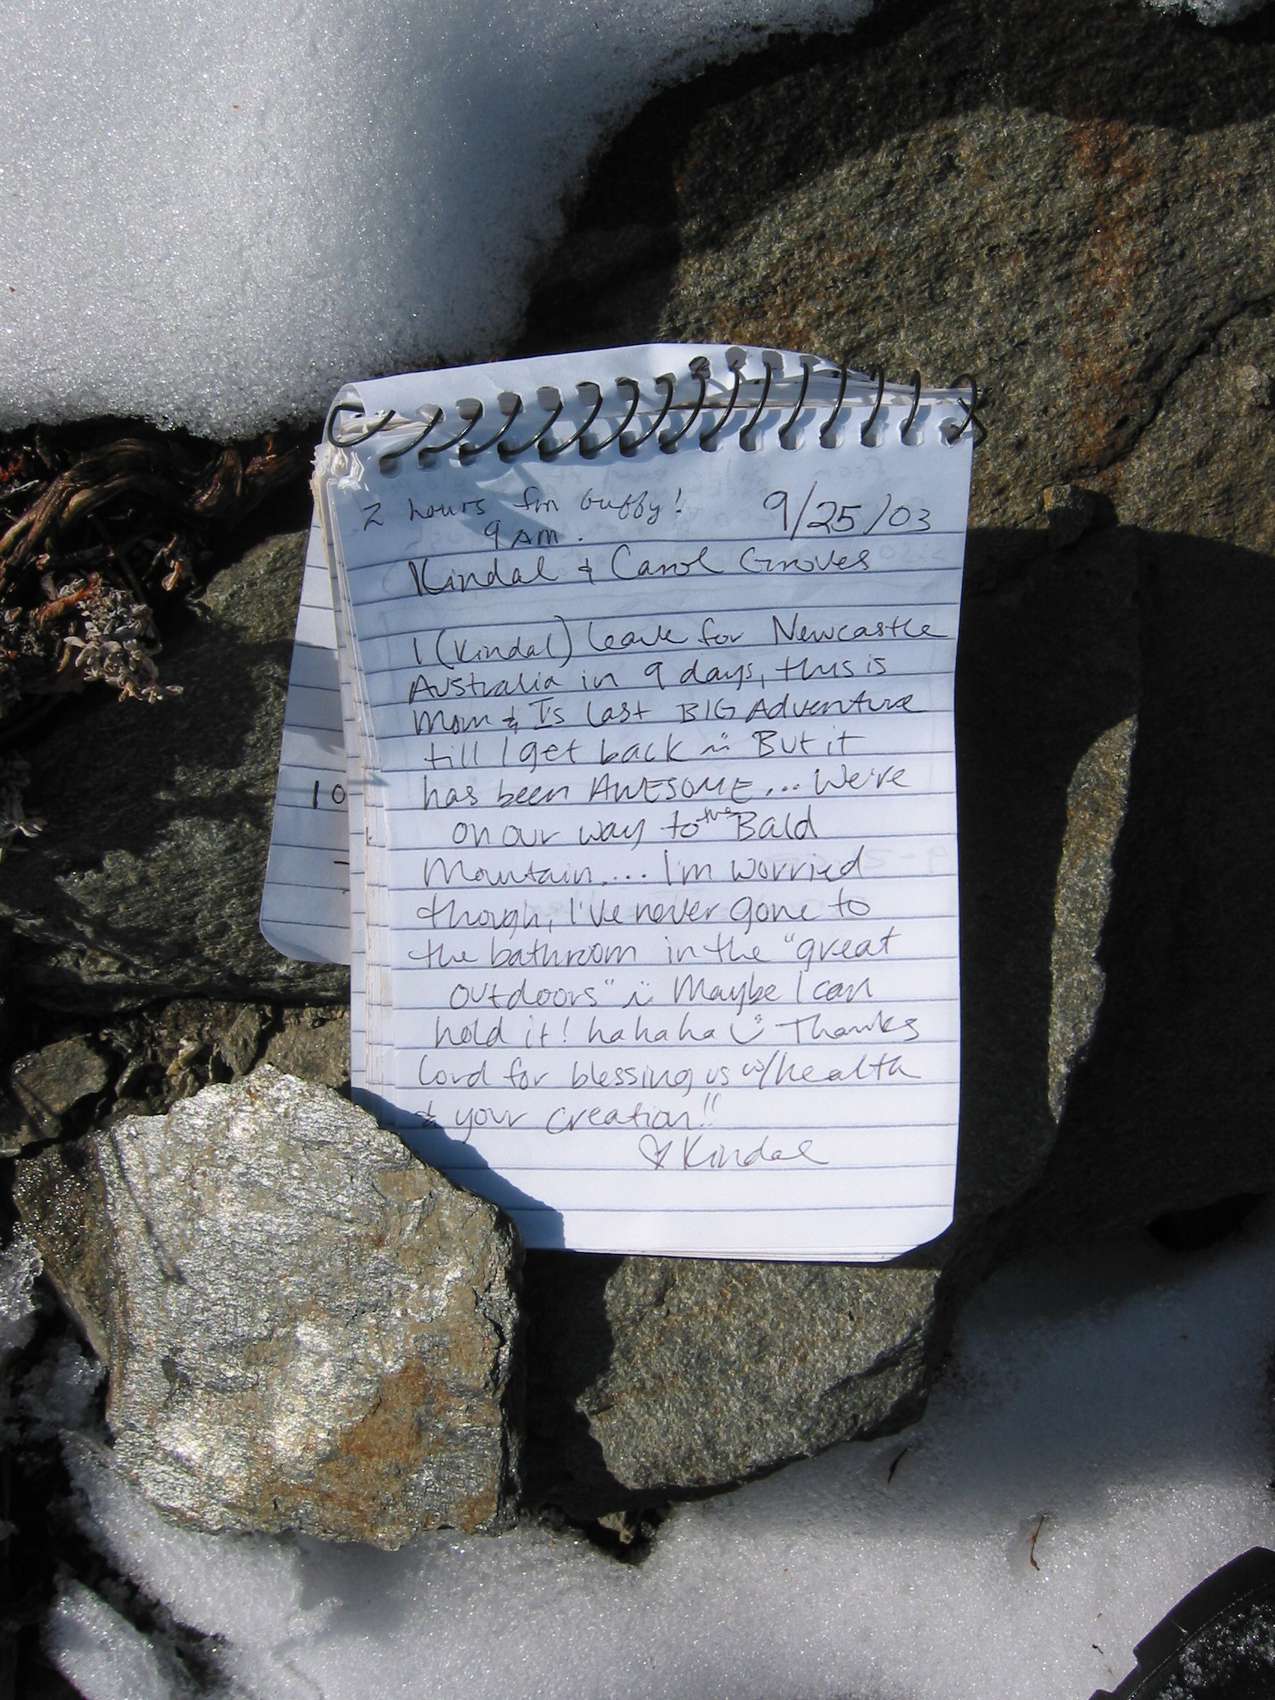 2 hours fm Guffy! 9/25/03
9 AM.
Kindal & Carol Groves
I (Kindal) leave for Newcastle
Australia in 9 days, this is
Mom & I's last BIG Adventure
till I get back :( But it
has been AWESOME... We're
on our way to the Bald
Mountain.... I'm worried
though, I've never gone to
the bathroom in the "great
outdoors" :( Maybe I can
hold it! hahaha :) Thanks
Lord for blessing us w/health
& your creation!!
♡ Kindal
10